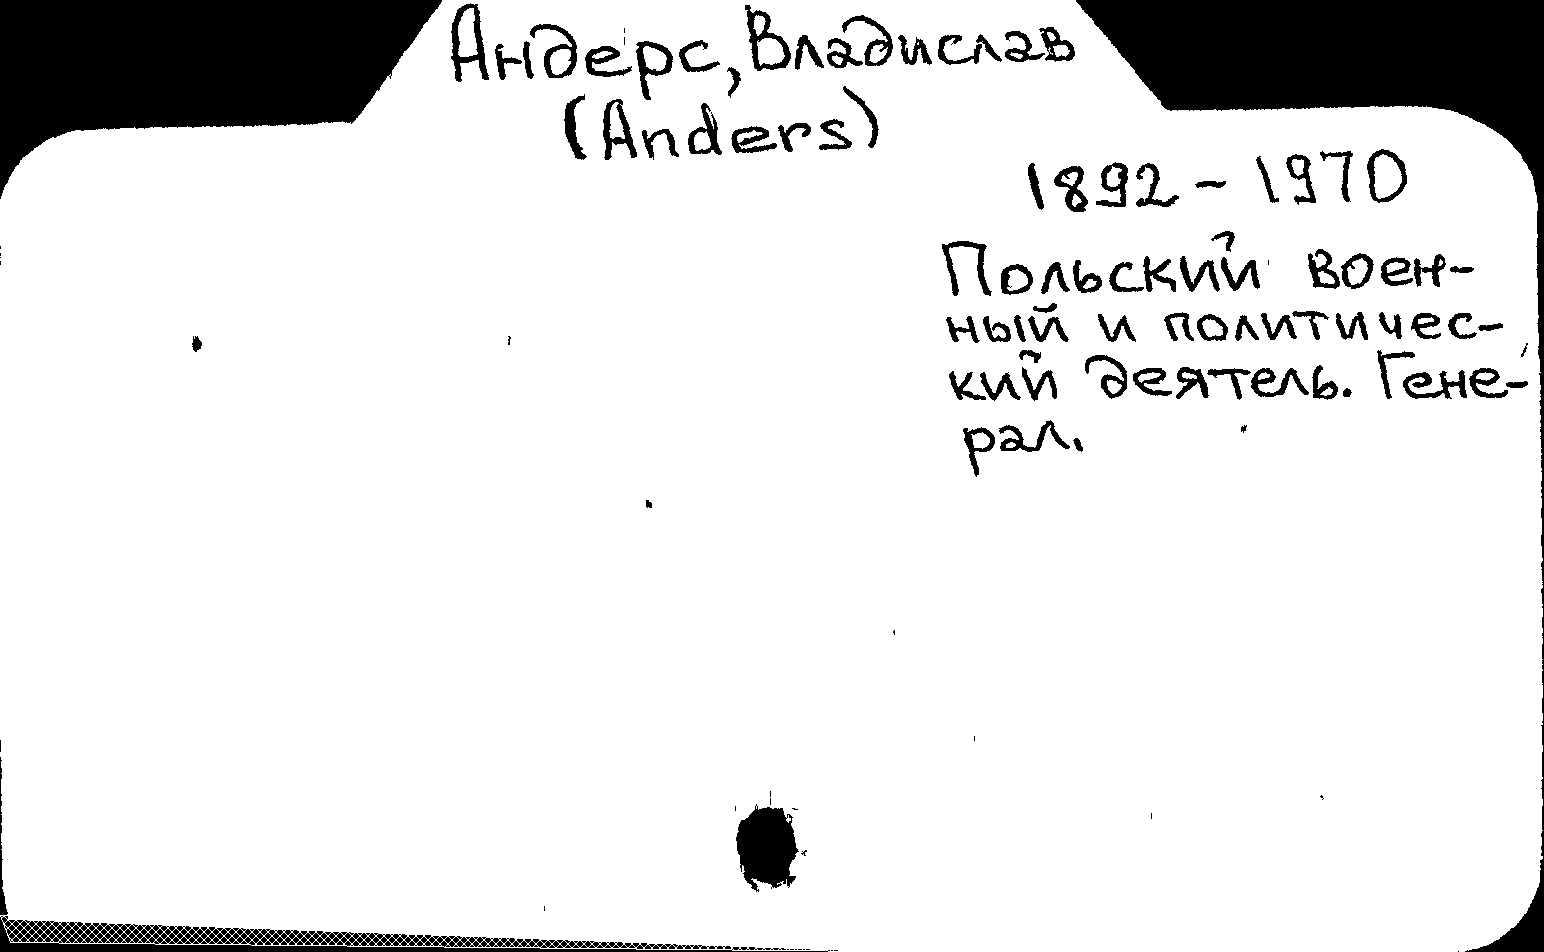 Андерс, Владислав
(Anders)
1892 - 1970
Польский воен-
ный и политичес-
кий деятель. Гене-
рал.